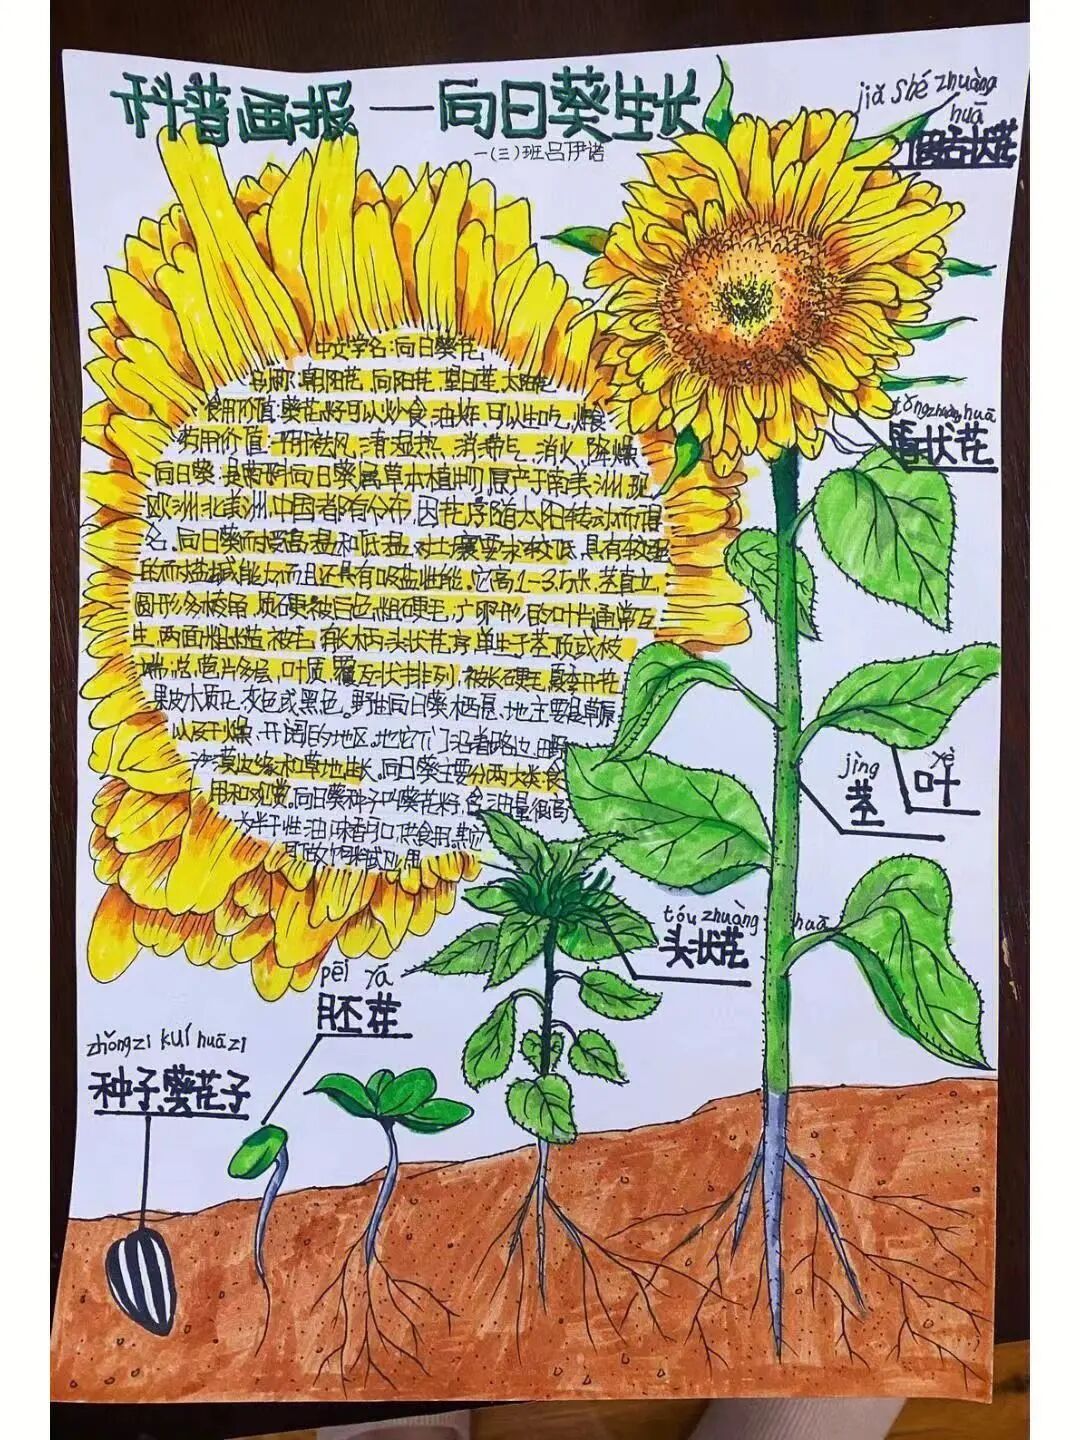 科普画报 — 向日葵生长
一(三)班 吕伊诺
jiǎ shé zhuàng huā
假舌状花
中文学名:向日葵花
别称:朝阳花 向阳花 望日莲 太阳花
食用价值:葵花籽可以炒食,油炸,可以生吃,煨食
药用价值:平肝祛风,清湿热,消滞气,消火,降燥
向日葵:是菊科向日葵属草本植物,原产于南美洲,现
欧洲北美洲,中国都有分布,因花序随太阳转动而得
名。向日葵耐受高温和低温,对土壤要求较低,具有较强
的耐盐碱能力,而且还具有吸盐性能。它高1-3.5米,茎直立,
圆形多棱角,质硬被白色粗硬毛,广卵形的叶片通常互
生,两面粗糙,被毛,有长柄,头状花序,单生于茎顶或枝
端,总苞片多层,叶质,覆瓦状排列,被长硬毛,夏季开花
果皮木质化,灰色或黑色。野生向日葵栖居地主要是草原
以及干燥、开阔的地区。它们沿着路边、田野
沙漠边缘和草地生长。向日葵主要分两大类:食
用和观赏。向日葵种子叫葵花籽,含油量很高
为半干性油,味香可口,供食用。
tǒng zhuàng huā
筒状花
yè
叶
jìng
茎
tóu zhuàng huā
头状花
pēi yá
胚芽
zhǒng zi kuí huā zi
种子,葵花子